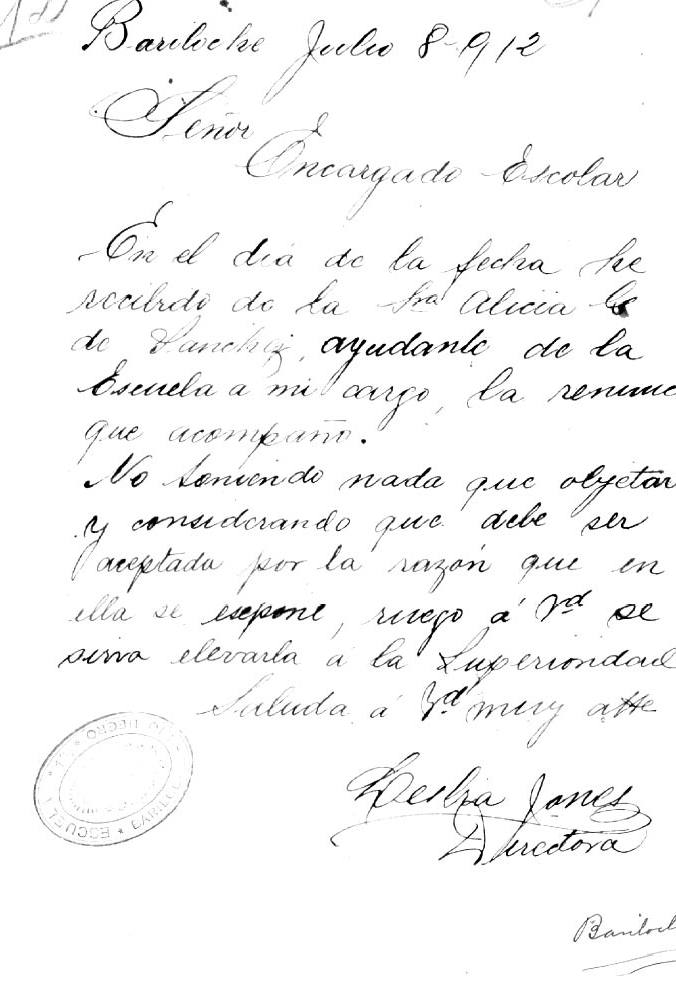 Bariloche Julio 8-912
Señor
Encargado Escolar
En el dia de la fecha he
recibido de la Sra Alicia
de Sanchez, ayudante de la
Escuela a mi cargo, la renunc
que acompaño.
No teniendo nada que objetar
y considerando que debe ser
aceptada por la razón que en
ella se expone, ruego á Vd se
sirva elevarla á la Superioridad
Saluda á Vd muy atte
Jones
Directora
RIO NEGRO * ESCUEL
Bariloch